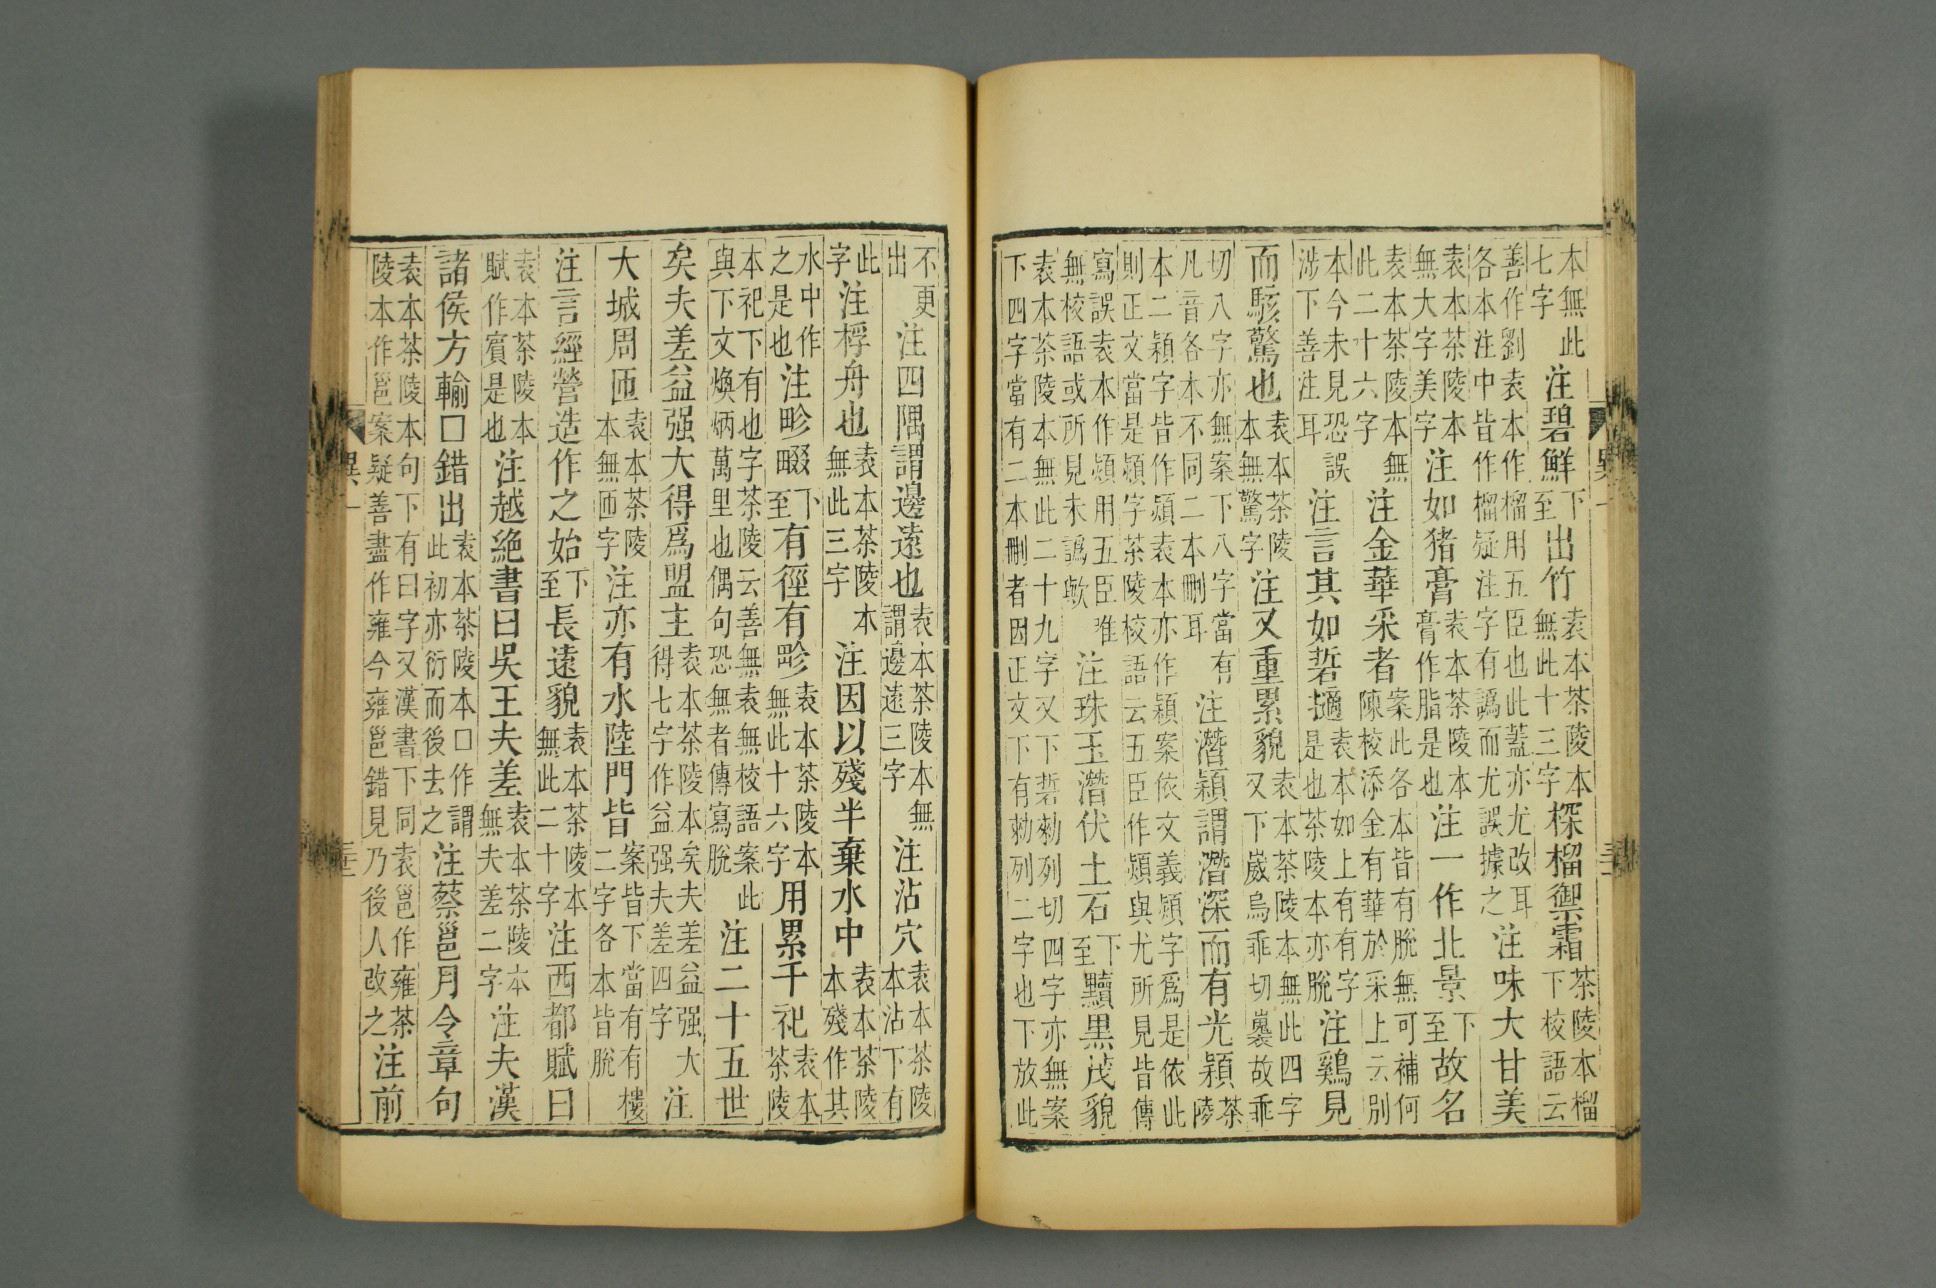 本無此七字注碧鮮下至出竹袁本茶陵本無此十三字探榴禦霜茶陵本榴下校語云
善作劉袁本作榴用五臣也此蓋亦尤改耳各本注中皆作榴疑注字有譌而尤誤據之注味大甘美
袁本茶陵本無大字美字注如猪膏袁本茶陵本膏作脂是也注一作北景下至故名
袁本茶陵本無此二十六字注金華采者案此各本皆有脫無可補何陳校添金有華於采上云別
本今未見恐誤涉下善注耳注言其如硩擿袁本如上有有字是也茶陵本亦脫注鷄見
而駭驚也袁本茶陵本無驚字注又重累貌袁本茶陵本無此四字又下崴烏乖切㠢故乖
切八字亦無案下八字當有凡音各本不同二本刪耳注潛穎謂潛深而有光穎茶陵
本二穎字皆作熲袁本亦作穎案依文義熲字爲是依此則正文當是熲字茶陵校語云五臣作熲與尤所見皆傳
寫誤袁本作熲用五臣唯無校語或所見未譌歟注珠玉潛伏土石下至黷黑茂貌
袁本茶陵本無此二十九字又下硩勑列切四字亦無案下四字當有二本刪者因正文下有勑列二字也下放此
不更出注四隅謂邊遠也袁本茶陵本無謂邊遠三字注沾穴袁本茶陵本沾下有
此字注桴舟也袁本茶陵本無此三字注因以殘半棄水中袁本茶陵本殘作其
水中作之是也注畛畷下至有徑有畛袁本茶陵本無此十六字用累千祀袁本茶陵
本祀下有也字茶陵云善無袁無校語案此與下文煥炳萬里也偶句恐無者傳寫脫注二十五世
矣夫差益强大得爲盟主袁本茶陵本矣夫差益强大得七字作益强夫差四字注
大城周匝袁本茶陵本無匝字注亦有水陸門皆案皆下當有有樓二字各本皆脫
注言經營造作之始下至長遠貌袁本茶陵本無此二十字注西都賦曰
袁本茶陵本賦作賓是也注越絕書曰吳王夫差袁本茶陵本無夫差二字注夫漢
諸侯方輸口錯出袁本茶陵本口作謂此初亦衍而後去之注蔡邕月令章句
袁本茶陵本句下有曰字又漢書下同袁邕作雍茶陵本作邕案疑善盡作雍今雍邕錯見乃後人改之注前